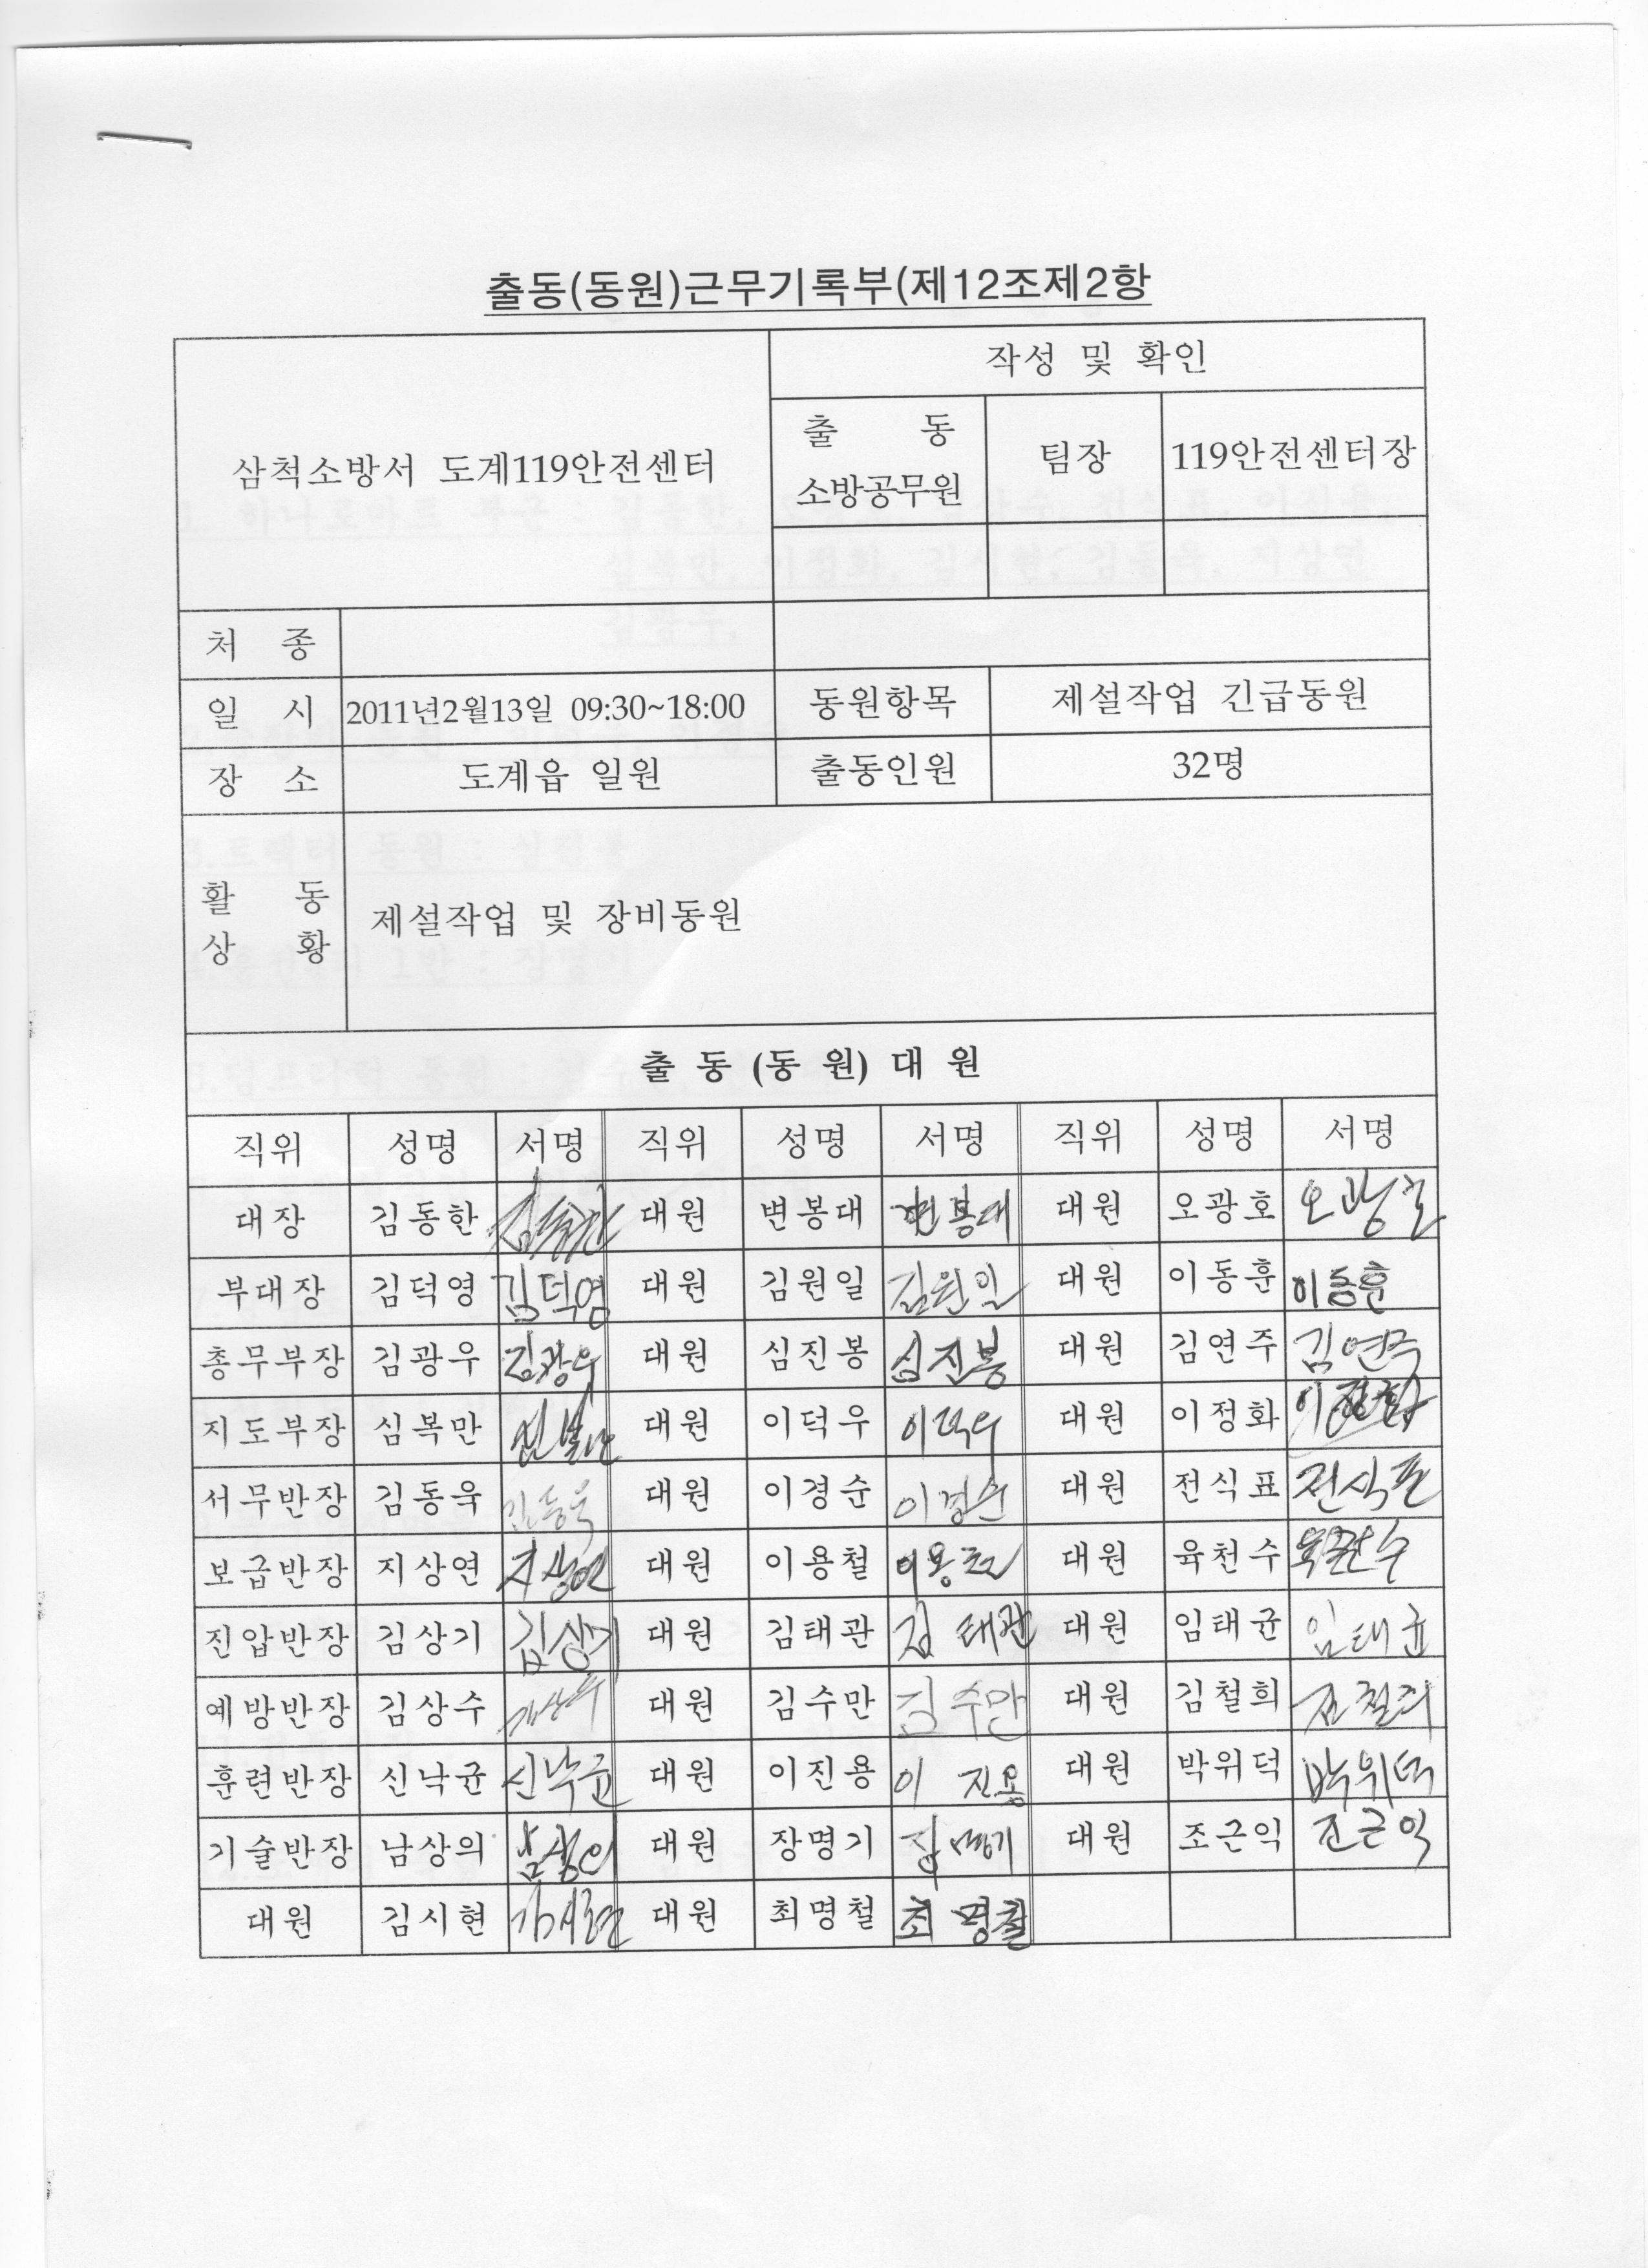 출동(동원)근무기록부(제12조제2항
삼척소방서 도계119안전센터
작성 및 확인
출 동
소방공무원
팀장
119안전센터장
처 종
일 시 2011년2월13일 09:30~18:00 동원항목 제설작업 긴급동원
장 소 도계읍 일원 출동인원 32명
활 동
상 황
제설작업 및 장비동원
출 동 (동 원) 대 원
직위 성명 서명 직위 성명 서명 직위 성명 서명
대장 김동한 김동한 대원 변봉대 변봉대 대원 오광호 오광호
부대장 김덕영 김덕영 대원 김원일 김원일 대원 이동훈 이동훈
총무부장 김광우 김광우 대원 심진봉 심진봉 대원 김연주 김연주
지도부장 심복만 심복만 대원 이덕우 이덕우 대원 이정화 이정화
서무반장 김동욱 김동욱 대원 이경순 이경순 대원 전식표 전식표
보급반장 지상연 지상연 대원 이용철 이용철 대원 육천수 육천수
진압반장 김상기 김상기 대원 김태관 김태관 대원 임태균 임태균
예방반장 김상수 김상수 대원 김수만 김수만 대원 김철희 김철희
훈련반장 신낙균 신낙균 대원 이진용 이진용 대원 박위덕 박위덕
기술반장 남상의 남상의 대원 장명기 장명기 대원 조근익 조근익
대원 김시현 김시현 대원 최명철 최명철